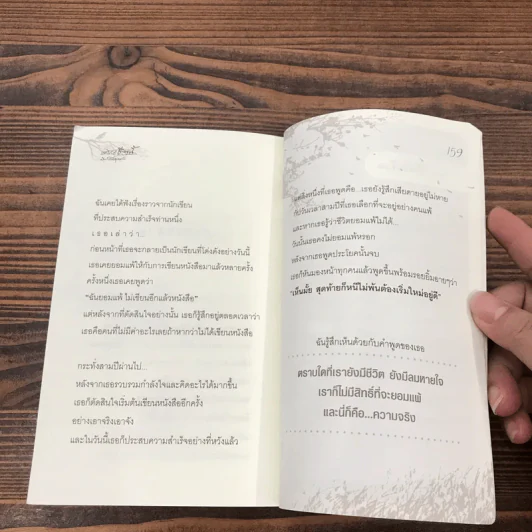 ฉันเคยได้ฟังเรื่องราวจากนักเขียน
ที่ประสบความสำเร็จท่านหนึ่ง
เธอเล่าว่า...
ก่อนหน้าที่เธอจะกลายเป็นนักเขียนที่โด่งดังอย่างวันนี้
เธอเคยยอมแพ้ให้กับการเขียนหนังสือมาแล้วหลายครั้ง
ครั้งหนึ่งเธอเคยพูดว่า
"ฉันยอมแพ้ ไม่เขียนอีกแล้วหนังสือ"
แต่หลังจากที่ตัดสินใจอย่างนั้น เธอก็รู้สึกอยู่ตลอดเวลาว่า
เธอคือคนที่ไม่มีค่าอะไรเลยถ้าหากว่าไม่ได้เขียนหนังสือ
กระทั่งสามปีผ่านไป...
หลังจากเธอรวบรวมกำลังใจและคิดอะไรได้มากขึ้น
เธอก็ตัดสินใจเริ่มต้นเขียนหนังสืออีกครั้ง
อย่างเอาจริงเอาจัง
และในวันนี้เธอก็ประสบความสำเร็จอย่างที่หวังแล้ว
159
แต่สิ่งหนึ่งที่เธอพูดคือ...เธอยังรู้สึกเสียดายอยู่ไม่หาย
กับวันเวลาสามปีที่เธอเลือกที่จะอยู่อย่างคนแพ้
และหากเธอรู้ว่าชีวิตยอมแพ้ไม่ได้...
วันนั้นเธอคงไม่ยอมแพ้หรอก
หลังจากเธอพูดประโยคนั้นจบ
เธอก็หันมองหน้าทุกคนแล้วพูดขึ้นพร้อมรอยยิ้มอายๆว่า
"เห็นมั้ย สุดท้ายก็หนีไม่พ้นต้องเริ่มใหม่อยู่ดี"
ฉันรู้สึกเห็นด้วยกับคำพูดของเธอ
ตราบใดที่เรายังมีชีวิต ยังมีลมหายใจ
เราก็ไม่มีสิทธิ์ที่จะยอมแพ้
และนี่ก็คือ...ความจริง